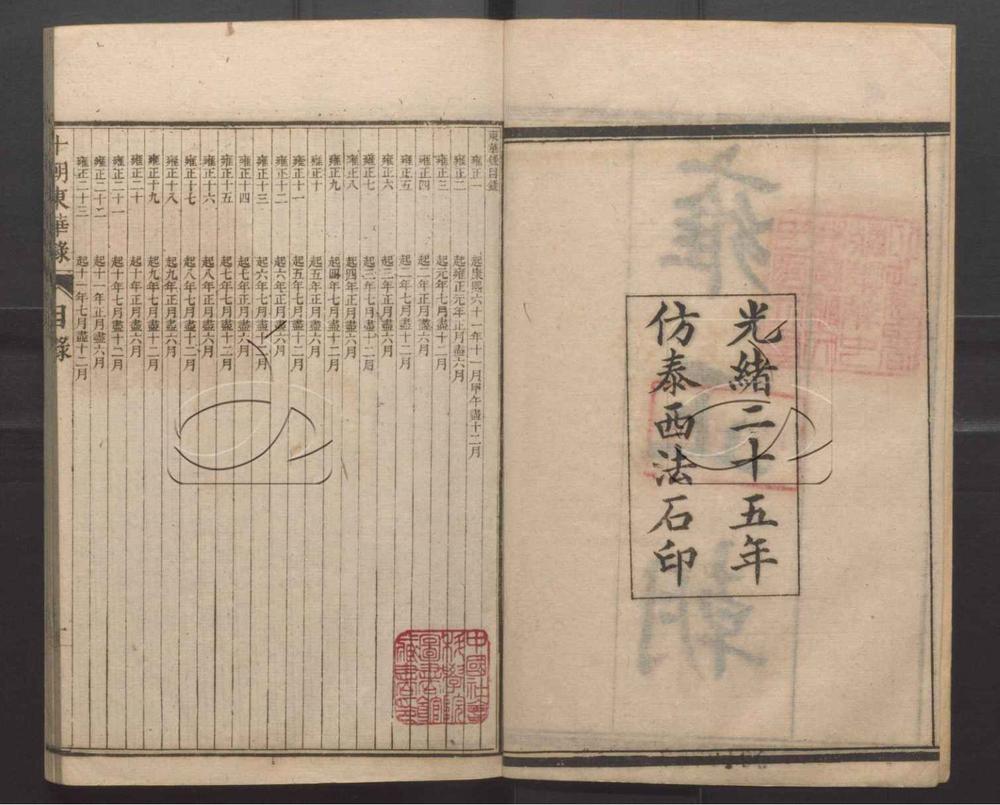 光緒二十五年
仿泰西法石印
雍正一 起康熙六十一年十一月甲午盡十二月
雍正二 起雍正元年正月盡六月
雍正三 起元年七月盡十二月
雍正四 起二年正月盡六月
雍正五 起二年七月盡十二月
雍正六 起三年正月盡六月
雍正七 起三年七月盡十二月
雍正八 起四年正月盡六月
雍正九 起四年七月盡十二月
雍正十 起五年正月盡六月
雍正十一 起五年七月盡十二月
雍正十二 起六年正月盡六月
雍正十三 起六年七月盡十二月
雍正十四 起七年正月盡六月
雍正十五 起七年七月盡十二月
雍正十六 起八年正月盡六月
雍正十七 起八年七月盡十二月
雍正十八 起九年正月盡六月
雍正十九 起九年七月盡十二月
雍正二十 起十年正月盡六月
雍正二十一 起十年七月盡十二月
雍正二十二 起十一年正月盡六月
雍正二十三 起十一年七月盡十二月
十朝東華錄 目錄 一
中國社會
科學院
圖書館
藏書章